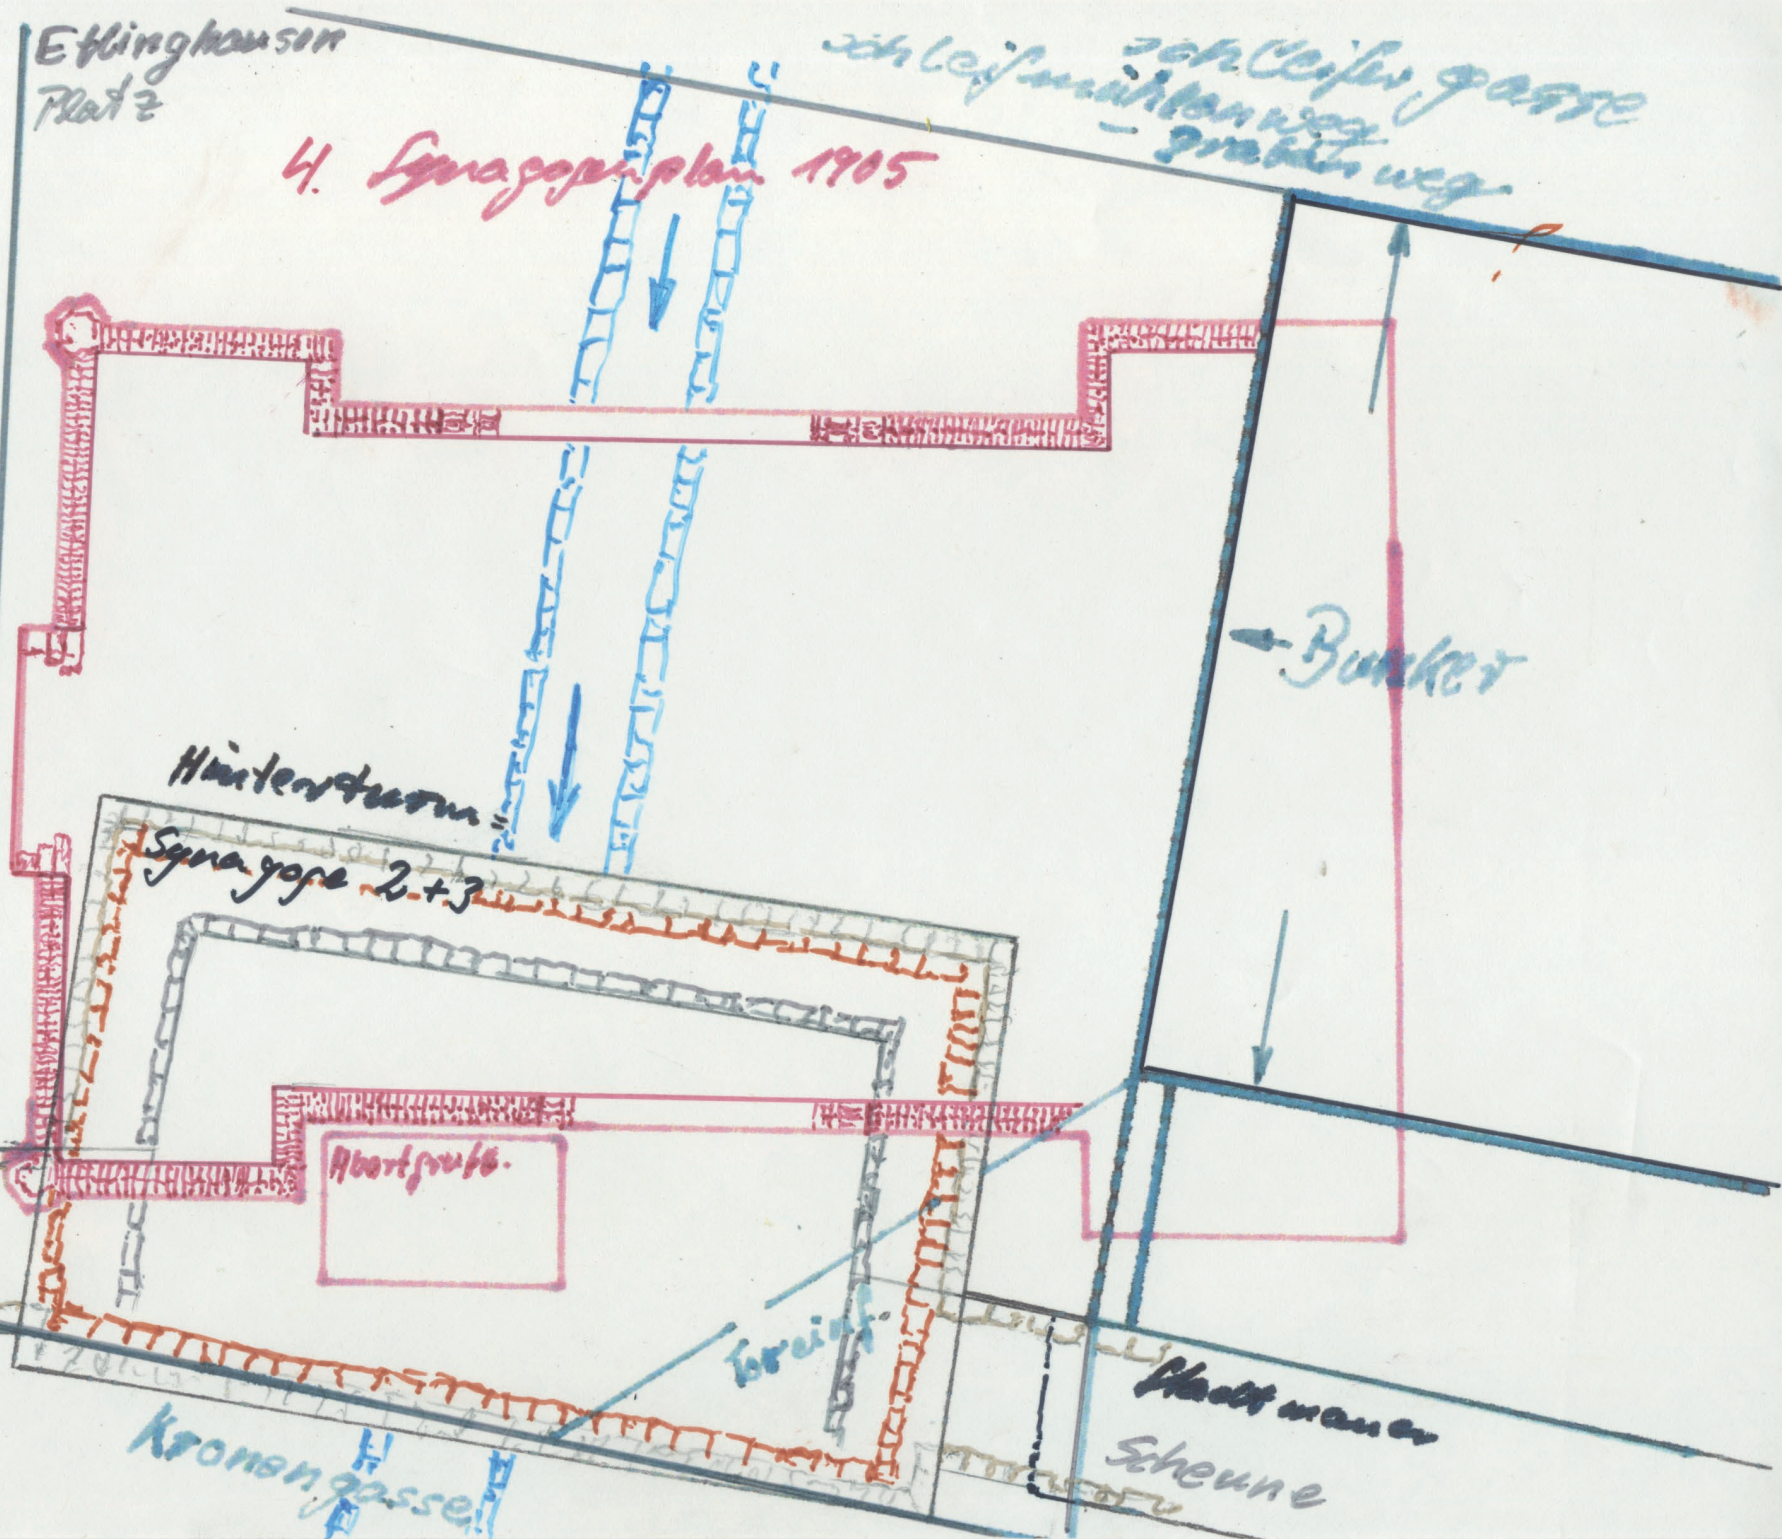 Ettinghausen
Platz
schleifmühlenweg
schleifergasse
Grabenweg
4. Synagogenplan 1905
Bunker
Hintersturm
Synagoge 2+3
Abortgrube.
Toreinf.
Stadtmauer
Scheune
Kronengasse